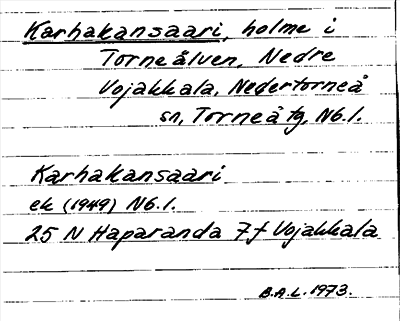 Karhakansaari, holme i
Torneälven, Nedre
Vojakkala, Nedertorneå
sn, Torneå tg, Nb.l.
Karhakansaari
ek (1949) Nb.l.
25 N Haparanda 7f Vojakkala
B.A.L. 1973.